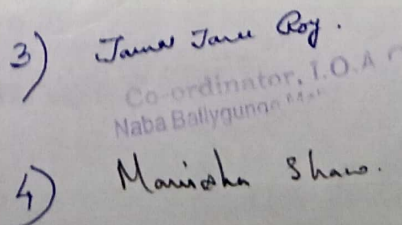 3) Jamal Jane Roy.
Co-ordinator, I.Q.A
Naba Ballygunge
4) Manisha Shaw.